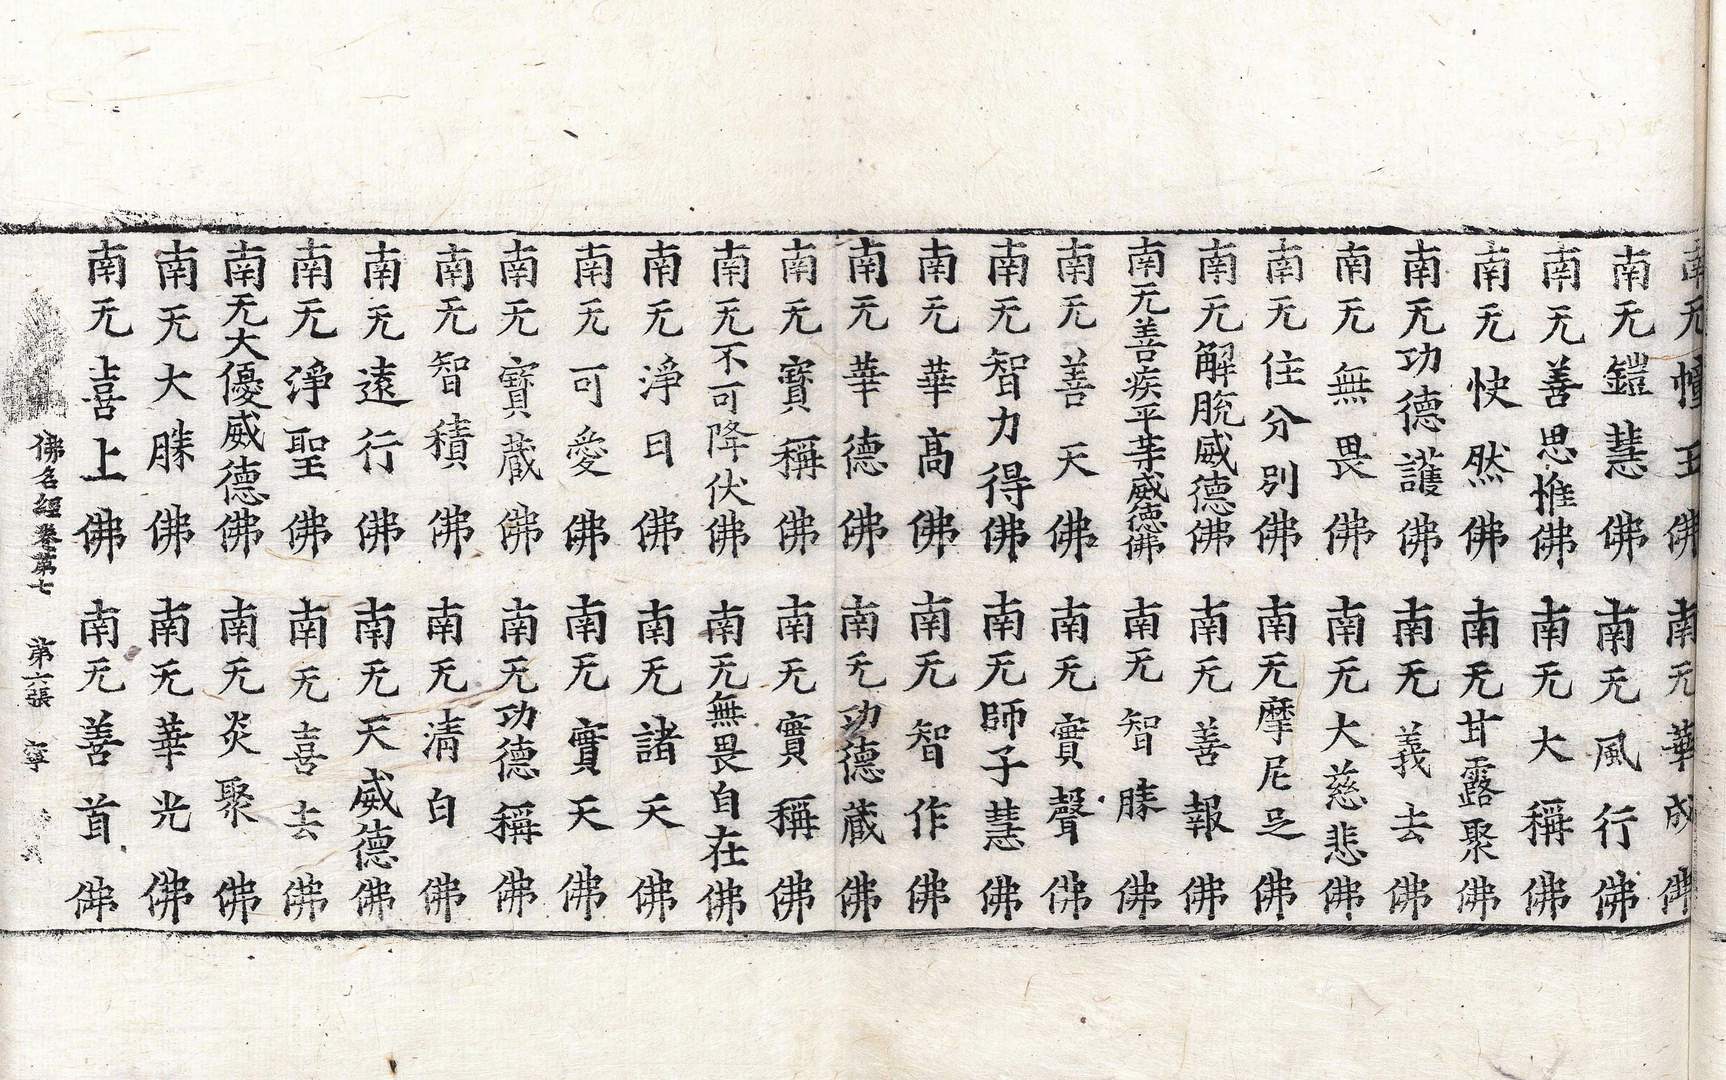 南无憧王佛 南无華成佛
南无鎧慧佛 南无風行佛
南无善思惟佛 南无大稱佛
南无快然佛 南无甘露聚佛
南无功德護佛 南无義去佛
南无無畏佛 南无大慈悲佛
南无住分別佛 南无摩尼足佛
南无解脫威德佛 南无善報佛
南无善疾平䓁威德佛 南无智勝佛
南无善天佛 南无實聲佛
南无智力得佛 南无師子慧佛
南无華髙佛 南无智作佛
南无華德佛 南无功德蔵佛
南无寶稱佛 南无實稱佛
南无不可降伏佛 南无無畏自在佛
南无淨日佛 南无諸天佛
南无可愛佛 南无實天佛
南无寶蔵佛 南无功德稱佛
南无智積佛 南无清白佛
南无遠行佛 南无天威德佛
南无淨聖佛 南无喜去佛
南无大優威德佛 南无炎聚佛
南无大勝佛 南无華光佛
南无喜上佛 南无善首佛
佛名經卷第七 第六張 寧